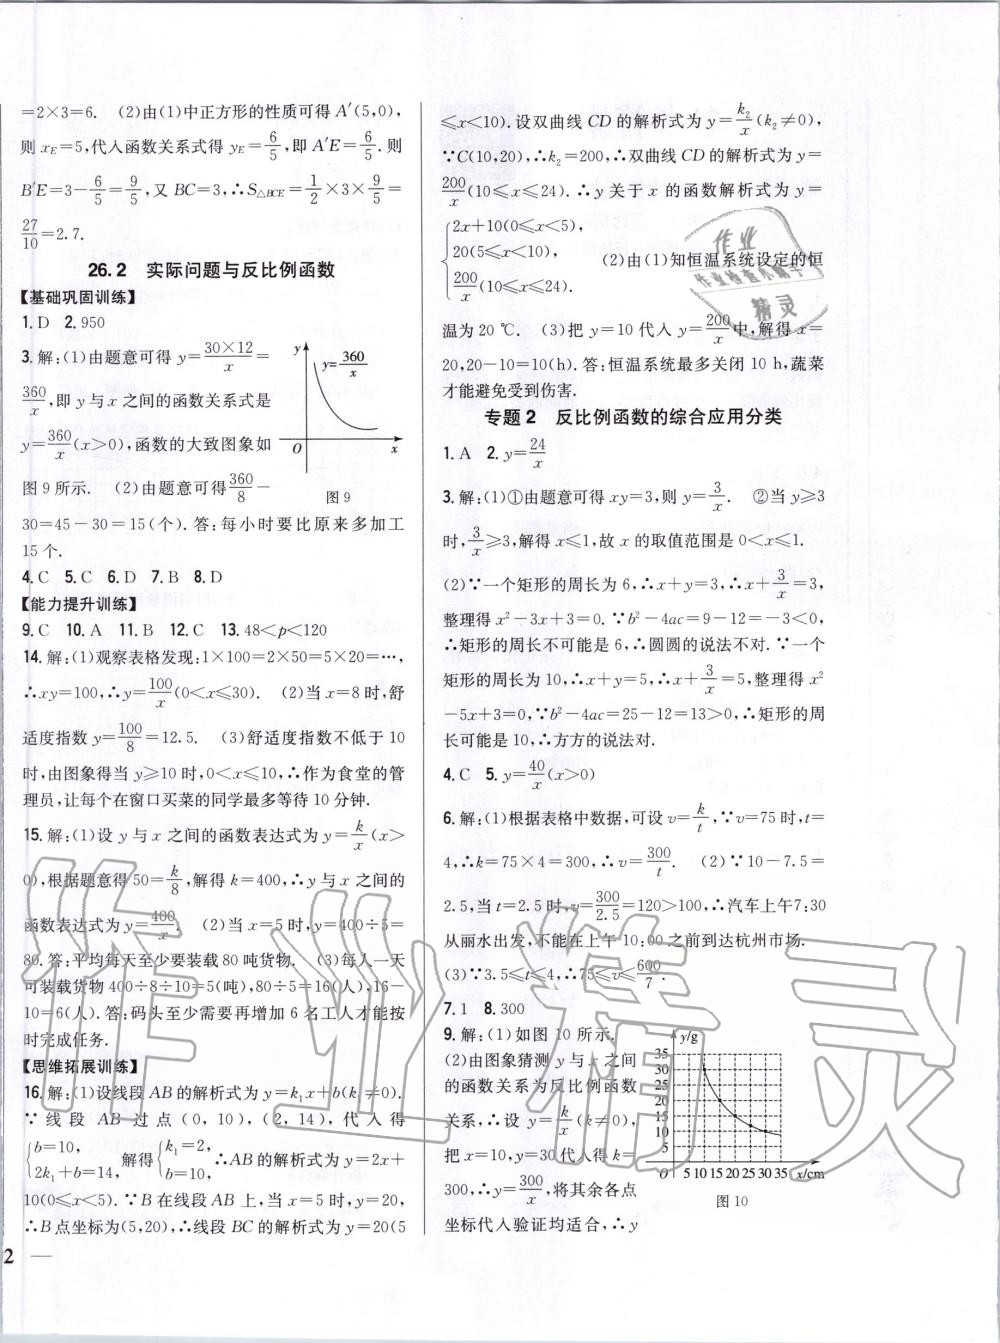 =2×3=6. (2)由(1)中正方形的性质可得 A′(5,0),
则 x_E=5,代入函数关系式得 y_E=6/5,即 A′E=6/5.则
B′E=3−6/5=9/5,又 BC=3,∴S△BCE=1/2×3×9/5=
27/10=2.7.
26.2 实际问题与反比例函数
【基础巩固训练】
1.D 2.950
3.解:(1)由题意可得 y=30×12/x=
360/x,即 y 与 x 之间的函数关系式是
y=360/x(x>0),函数的大致图象如
图 9 所示. (2)由题意可得360/8−
y
y=360/x
O
x
图 9
30=45−30=15(个).答:每小时要比原来多加工
15 个.
4.C 5.C 6.D 7.B 8.D
【能力提升训练】
9.C 10.A 11.B 12.C 13.48<p<120
14.解:(1)观察表格发现:1×100=2×50=5×20=…,
∴xy=100,∴y=100/x(0<x≤30). (2)当 x=8 时,舒
适度指数 y=100/8=12.5. (3)舒适度指数不低于 10
时,由图象得当 y≥10 时,0<x≤10,∴作为食堂的管
理员,让每个在窗口买菜的同学最多等待 10 分钟.
15.解:(1)设 y 与 x 之间的函数表达式为 y=k/x(x>
0),根据题意得 50=k/8,解得 k=400,∴y 与 x 之间的
函数表达式为 y=400/x. (2)当 x=5 时,y=400÷5=
80.答:平均每天至少要装载 80 吨货物. (3)每人一天
可装载货物 400÷8÷10=5(吨),80÷5=16(人),16−
10=6(人).答:码头至少需要再增加 6 名工人才能按
时完成任务.
【思维拓展训练】
16.解:(1)设线段 AB 的解析式为 y=k₁x+b(k₁≠0).
∵线段 AB 过点(0,10),(2,14),代入得
{b=10, 2k₁+b=14, 解得{k₁=2, b=10, ∴AB 的解析式为 y=2x+
10(0≤x<5).∵B 在线段 AB 上,当 x=5 时,y=20,
∴B 点坐标为(5,20),∴线段 BC 的解析式为 y=20(5
2
≤x<10).设双曲线 CD 的解析式为 y=k₂/x(k₂≠0),
∵C(10,20),∴k₂=200,∴双曲线 CD 的解析式为 y=
200/x(10≤x≤24).∴y 关于 x 的函数解析式为 y=
{2x+10(0≤x<5),
20(5≤x<10), (2)由(1)知恒温系统设定的恒
200/x(10≤x≤24).
温为 20 ℃. (3)把 y=10 代入 y=200/x中,解得 x=
20,20−10=10(h).答:恒温系统最多关闭 10 h,蔬菜
才能避免受到伤害.
专题 2 反比例函数的综合应用分类
1.A 2.y=24/x
3.解:(1)①由题意可得 xy=3,则 y=3/x. ②当 y≥3
时,3/x≥3,解得 x≤1,故 x 的取值范围是 0<x≤1.
(2)∵一个矩形的周长为 6,∴x+y=3,∴x+3/x=3,
整理得 x²−3x+3=0.∵b²−4ac=9−12=−3<0,
∴矩形的周长不可能是 6,∴圆圆的说法不对.∵一个
矩形的周长为 10,∴x+y=5,∴x+3/x=5,整理得 x²
−5x+3=0,∵b²−4ac=25−12=13>0,∴矩形的周
长可能是 10,∴方方的说法对.
4.C 5.y=40/x(x>0)
6.解:(1)根据表格中数据,可设 v=k/t,∵v=75 时,t=
4,∴k=75×4=300,∴v=300/t. (2)∵10−7.5=
2.5,当 t=2.5 时,v=300/2.5=120>100,∴汽车上午7:30
从丽水出发,不能在上午 10:00 之前到达杭州市场.
(3)∵3.5≤t≤4,∴75≤v≤600/7.
7.1 8.300
9.解:(1)如图 10 所示.
(2)由图象猜测 y 与 x 之间
的函数关系为反比例函数
关系,∴设 y=k/x(k≠0),
把 x=10,y=30代入得 k=
300,∴y=300/x,将其余各点
坐标代入验证均适合,∴y
y/g
35
30
25
20
15
10
5
O 5 10 15 20 25 30 35 x/cm
图 10
作业
作业检查小帮手
精灵
作业精灵